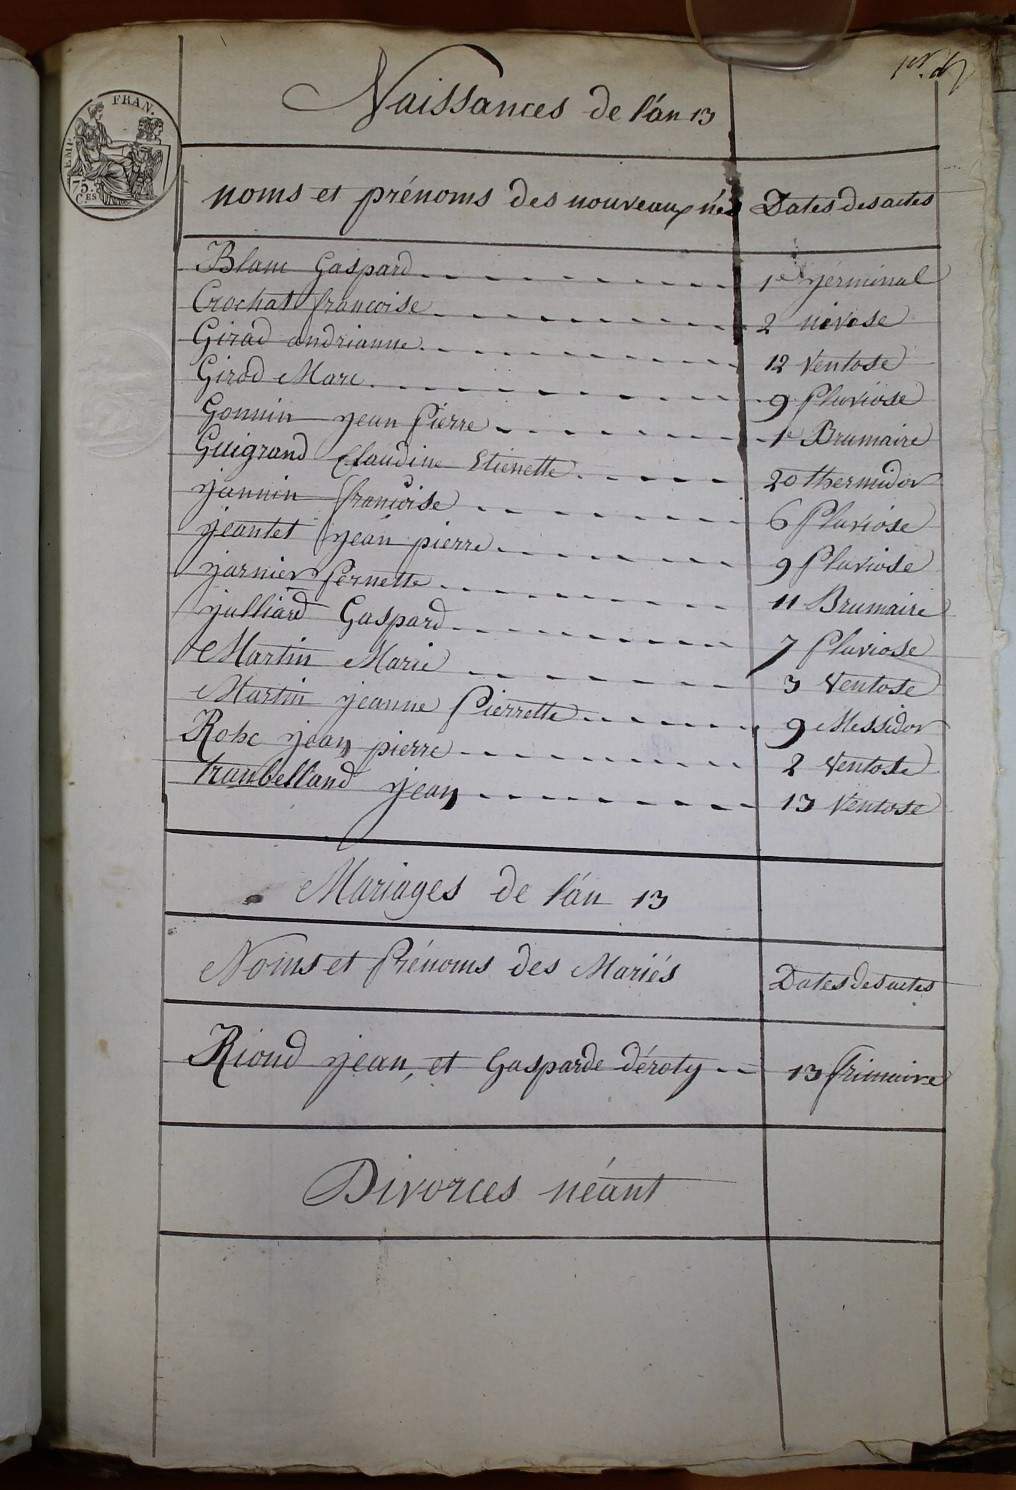 Naissances de l'an 13
EMP. FRAN.
75 Ces
noms et prénoms des nouveaux nés Dates des actes
Blanc Gaspard 1er germinal
Crochat francoise 2 nivose
Girad andrianne 12 Ventose
Girod Marc 9 Pluviose
Gonnin jean Pierre 1er Brumaire
Guigrand Claudine Etienette 20 thermidor
jannin françoise 6 Pluviose
jeantet jean pierre 9 Pluviose
jarnier Pernette 11 Brumaire
julliard Gaspard 7 Pluviose
Martin Marie 3 Ventose
Martin jeanne Pierrette 9 Messidor
Robe jean pierre 2 Ventose
trambelland jean 13 Ventose
Mariages de l'an 13
Noms et Prénoms des Mariés Dates des actes
Riond jean, et Gasparde déroty 13 frimaire
Divorces néant